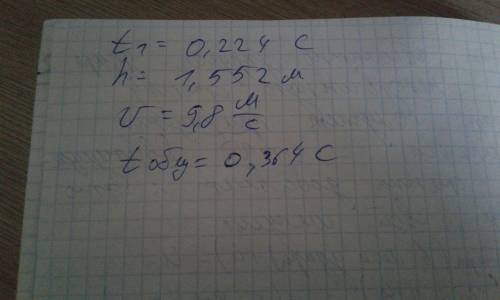 t₁ = 0,224 с
h = 1,552 м
v = 9,8 м/с
t общ = 0,364 с